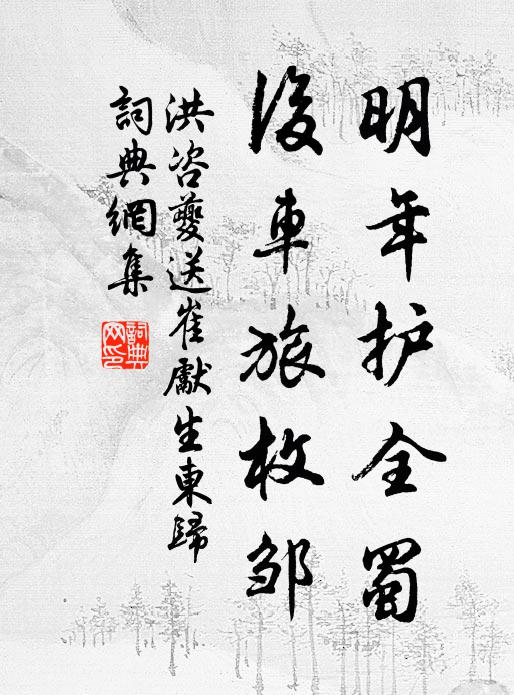 明年护全蜀
後車旅枚邹
洪咨夔送崔獻生東歸
詞典網集
詞典网印